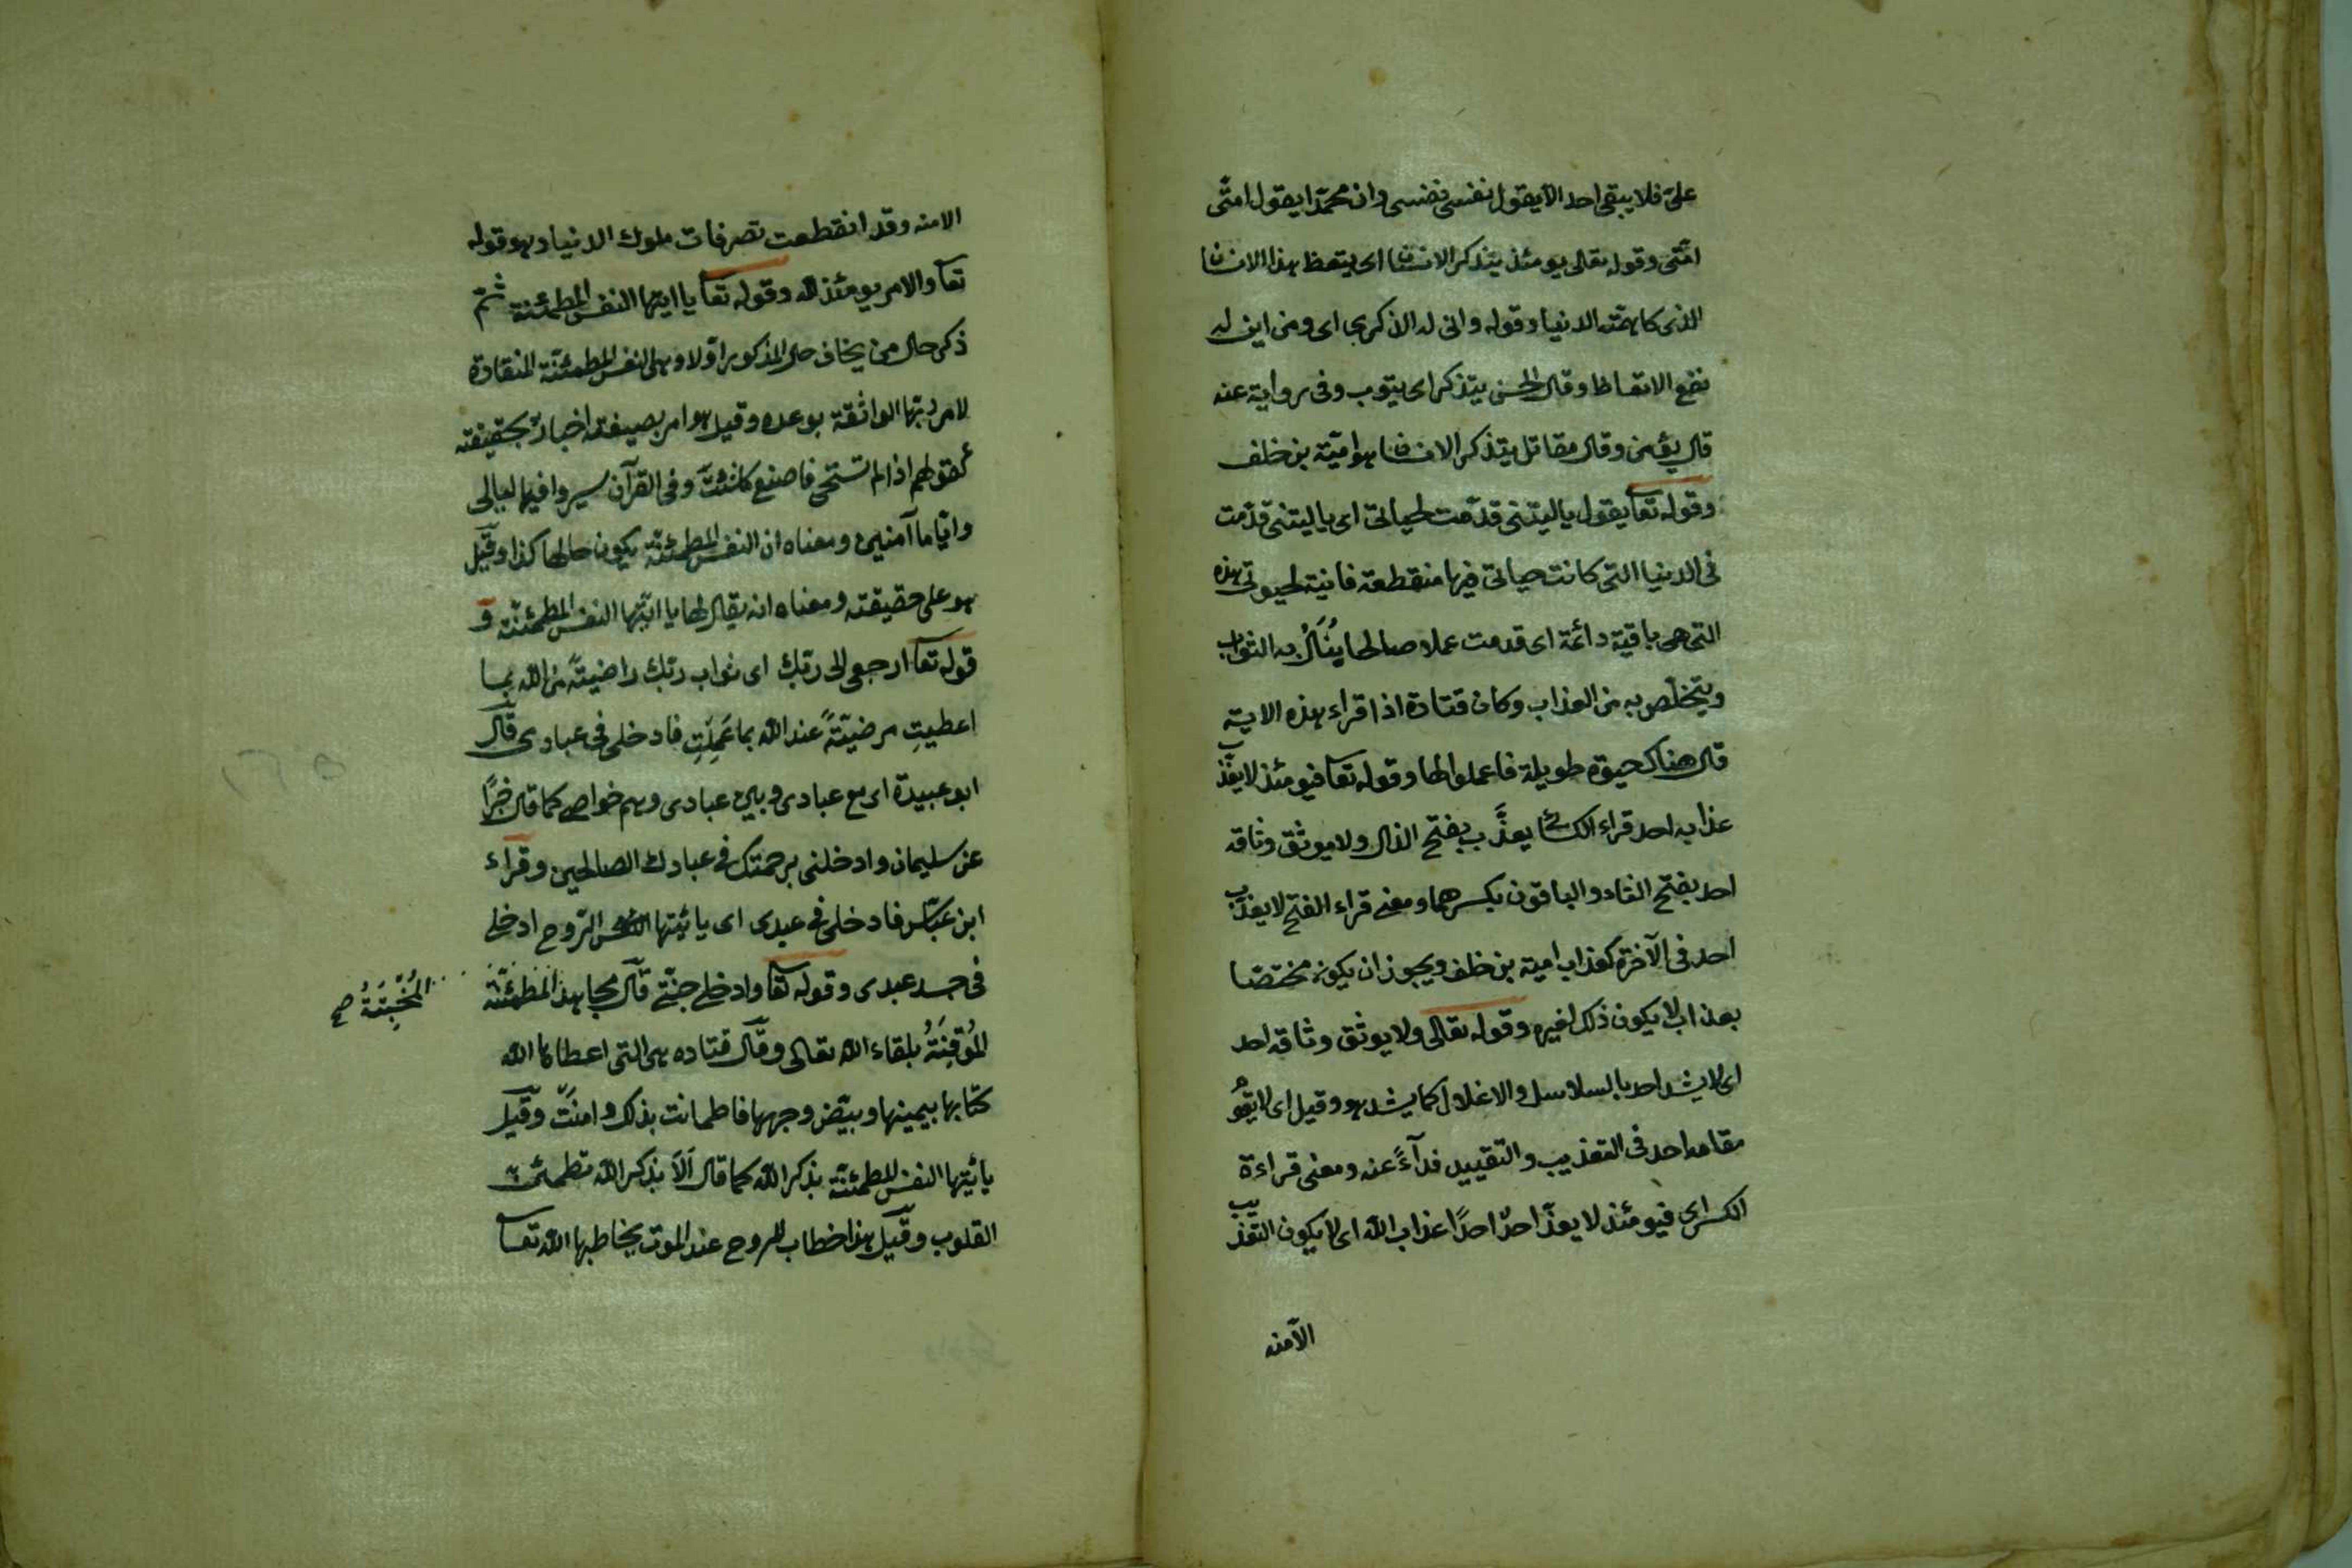 علىّ فلا يبقى احد الّا يقول نفسى نفسى وان محمّدا يقول امتّى
امّتى وقوله تعالى يومئذ يتذكر الانسان اى يتعظ هذا الانسان
الذى كا همّته الدنيا وقوله وانى له الذكرى اى ومن اين له
نفع الاتعاظ وقال الحسن يتذكر اى يتوب وفى رواية عنه
قال يؤمن وقال مقاتل يتذكر الانسان هو اميّة بن خلف
وقوله تعا يقول ياليتنى قدّمت لحياتى اى ياليتنى قدّمت
فى الدنيا التى كانت حياتى فيها منقطعة فانية لحيوتى هذه
التى هى باقية دائمة اى قدمت عملا صالحا يُنَالُ به الثواب
ويتخلّص به من العذاب وكان قتادة اذا قراء هذه الاية
قال هناك حيوة طويلة فاعملوا لها وقوله تعا فيومئذ لا يعذّب
عذابه احد قراء الكسائى يعذَّب بفتح الذال ولا يوثق وثاقه
احد بفتح الثاء والباقون بكسرهما ومعنى قراء الفتح لا يعذّب
احد فى الآخرة كعذاب امية بن خلف ويجوز ان يكون مختصّا
بعذاب لا يكون ذلك لغيره وقوله تعالى ولا يوثق وثاقه احد
اى لا يشد احد بالسلاسل والاغلال كما يشد هو وقيل اى لا يقوُ
مقامه احد فى التعذيب والتقييد فدآءً عنه ومعنى قراءة
الكسر اى فيومئذ لا يعذّ احدٌ احدًا عذاب الله اى لا يكون التعذيب
الآمنه
الامنه وقد انقطعت تصرفات ملوك الدنيا وهو قوله
تعا والامر يومئذ لله وقوله تعا يا ايتها النفس المطمئنة ثم
ذكر حال من يخاف حال المذكور اوّلا وهى النفس المطمئنة المنقادة
لامر ربّها الواثقة بوعده وقيل هو امر بصيغته اخبار بحقيقته
كقولهم اذا لم تستحى فاصنع ما شئت وفى القرآن سيروا فيها ليالى
واياما آمنين ومعناه ان النفس المطمئنة يكون حالها كذا وقيل
هو على حقيقته ومعناه انه يقال لها يا ايّتها النفس المطمئنّة و
قوله تعا ارجعى الى ربّك اى ثواب ربّك راضيةً من الله بما
اعطيتِ مرضيّةً عند الله بما عَمِلَتِ فادخلى فى عبادى قال
ابو عبيدة اى مع عبادى وبين عبادى وهم خواصى كما قال خبرًا
عن سليمان وادخلنى برحمتك فى عبادك الصالحين وقراء
ابن عبّاس فادخلى فى عبدى اى يا ايّتها النفس الرّوح ادخلى
فى جسد عبدى وقوله تعا وادخلى جنّتى قال مجاهد المطمئنّة
المُخْبِتَةُ صح
المُوْقِنَةُ بلقاء الله تعالى وقال قتاده هى التى اعطاها الله
كتابها بيمينها وبيّض وجهها فاطمانت بذلك وامنَتْ وقيل
يا ايّتها النفس المطمئنّة بذكر الله كما قال اَلَا بذكر الله تطمئن
القلوب وقيل هذا خطاب للروح عند الموت يخاطبها الله تعا